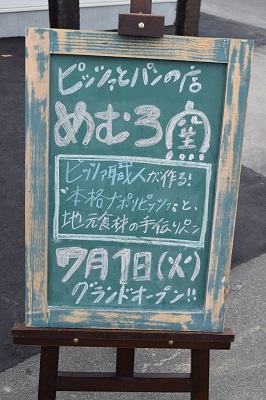 ピッツァとパンの店
めむろ窯
ピッツァ職人が作る!
本格ナポリピッツァと、
地元食材の手伝りパン
7月1日(火)
グランドオープン!!